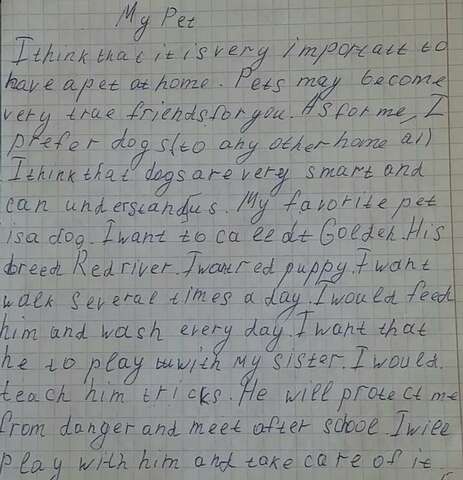 My Pet
I think that it is very importatt to
have a pet at home. Pets may become
very true friends for you. As for me, I
prefer dogs (to any other home al)
I think that dogs are very smart and
can understand us. My favorite pet
is a dog. I want to calledt Golden. His
breed Redriver. I want red puppy. I want
walk several times a day. I would feed
him and wash every day. I want that
he to play with my sister. I would
teach him tricks. He will protect me
from danger and meet after school. I will
play with him and take care of it